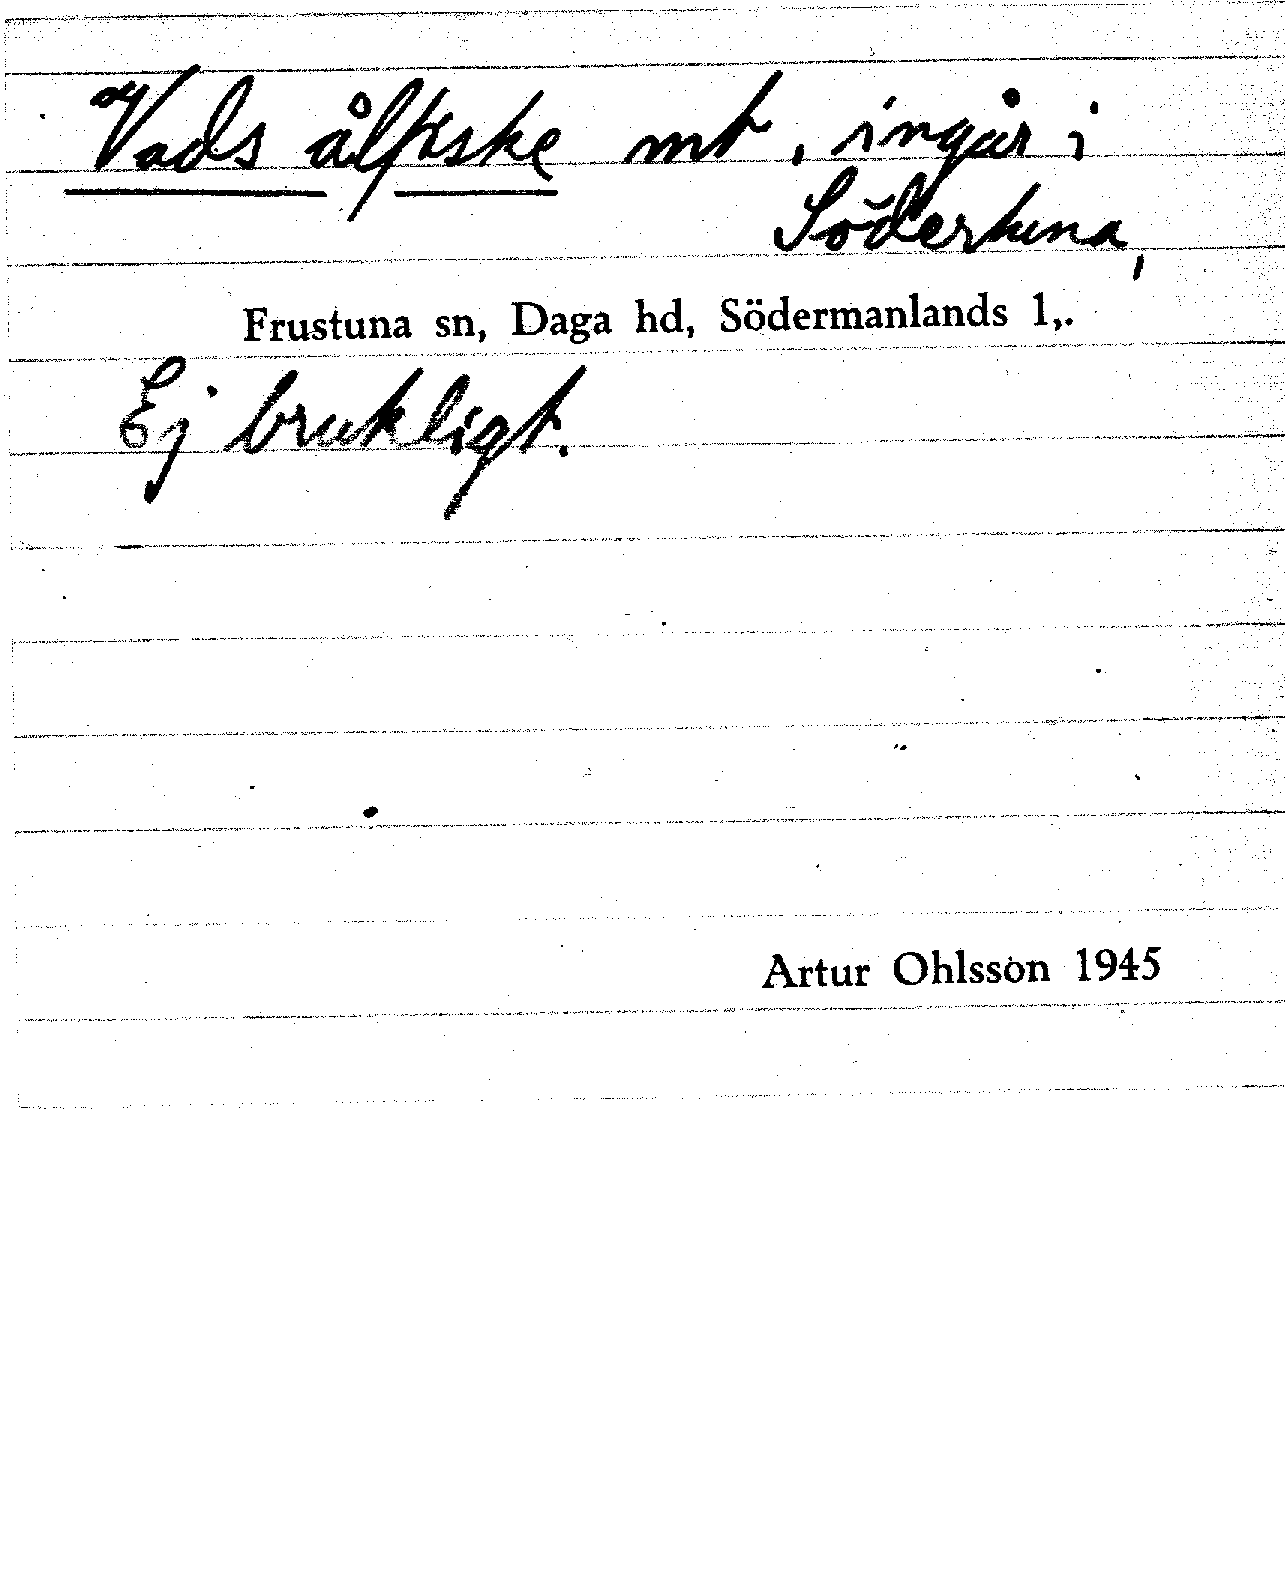 Vads ålfiske mt, ingår i
Södertuna,
Frustuna sn, Daga hd, Södermanlands l,.
Ej brukligt.
Artur Ohlsson 1945